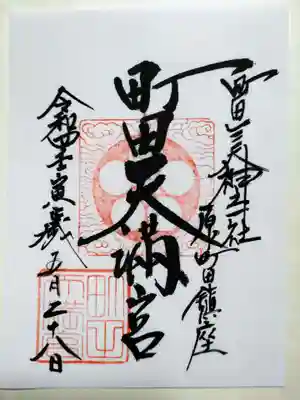 町田三天神社
原町田鎮座
町田天満宮
令和四壬寅歳 五月二十八日